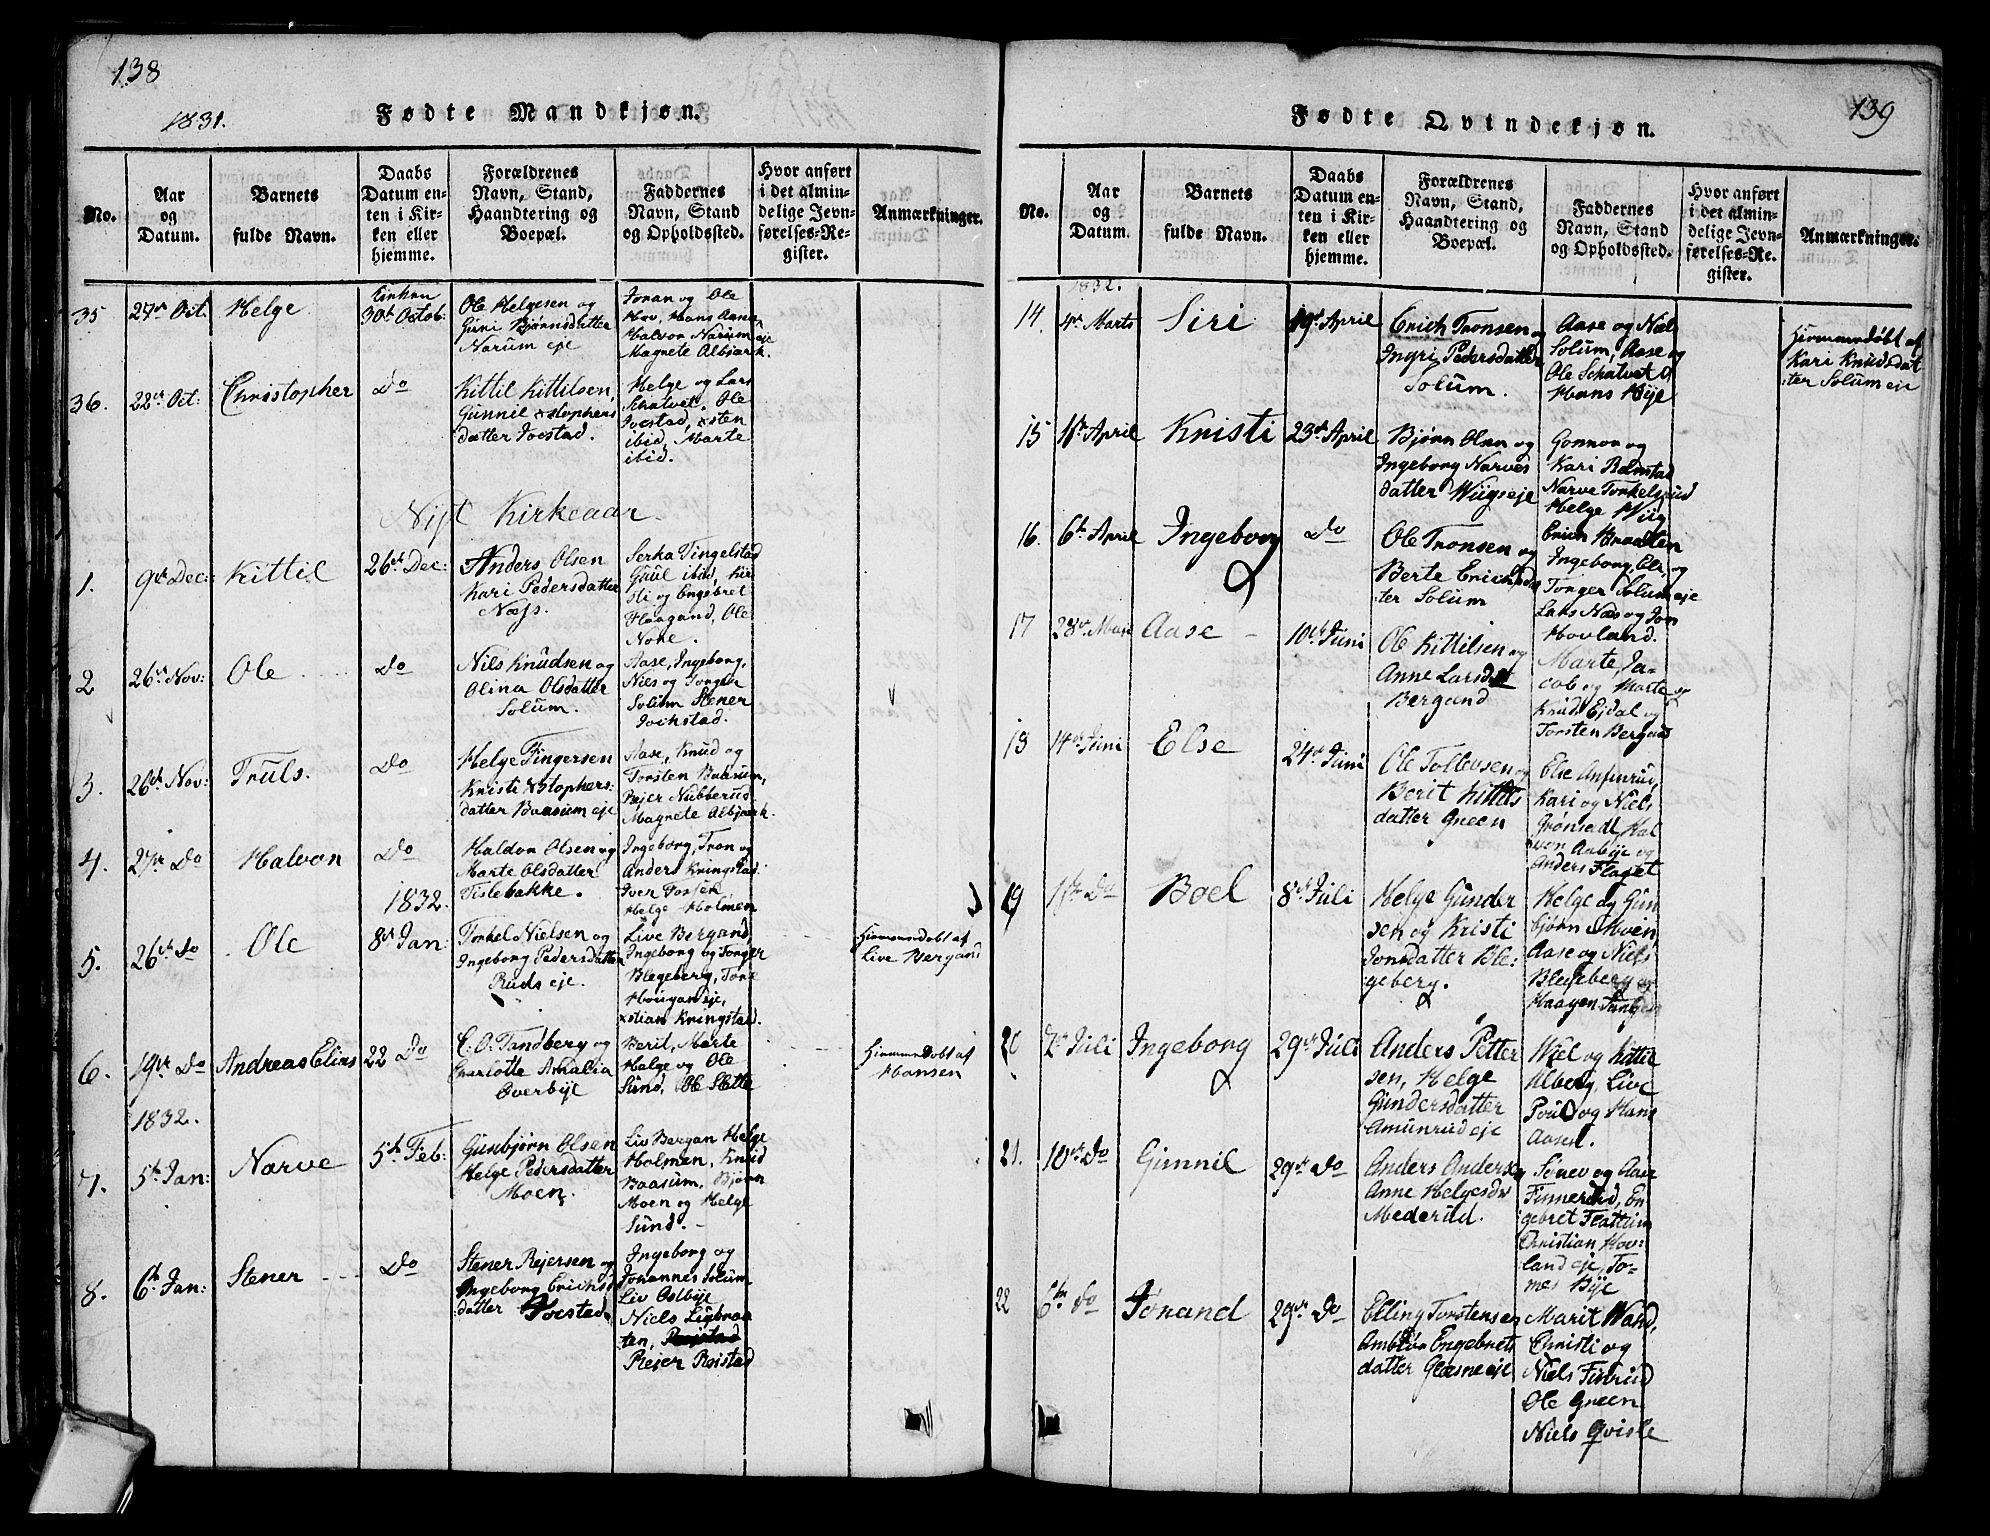 138
1831.
Fødte Mandkjøn.
No.
Aar
og
Datum.
Barnets
fulde Navn.
Daabs
Datum en-
ten i Kir-
ken eller
hjemme.
Forældrenes
Navn, Stand,
Haandtering og
Boepæl.
Faddernes
Navn, Stand
og Opholdssted.
Hvor anført
i det almin-
delige Jevn-
førelses-Re-
gister.
Anmærkninger.
35
27de Oct.
Helge
30te Octob:
Ole Helgesen og
Guri Bjørnsdatter
Narum eje
Joran og Ole
Hov, Hans Aana
Halvor Narum eje
Magnete Albjærk.
36.
22de Oct:
Christopher
Do
Kittil Kittilsen,
Gunnil xstophers
datter Joestad.
Helge og Lars
Schatvet, Ole
Joestad, xsten
ibid, Marte
ibid.
Nyt Kirkeaar.
1.
9de Dec:
Kittil
26de Dec:
Anders Olsen
Kari Pedersdatter
Næss.
Serka Tingelstad
Guul ibid, Kir
sti og Engebret
Haagand, Ole
Noke.
2
26de Nov:
Ole
Do
Nils Knudsen og
Olina Olsdatter
Solum.
Aase, Ingeborg,
Niels og Torger
Solum Stener
Jochstad.
3.
26de Nov:
Truls.
Do
Helge Fingersen
Kristi xstophers:
datter Baasum eje
Aase, Knud og
Torsten Baasum,
Rejer Nubberud
Magnete Albjærk.
4.
27de Do
Halvor
Do
Haldor Olsen og
Marte Olsdatter
Tislebakke.
Ingeborg, Tron og
Anders Kringstad
Iver Torsen
Helge Holmen
1832.
5.
26de do
Ole
8de Jan:
Torkel Nielsen og
Ingeborg Pedersdatter
Ruds eje.
Live Bergand,
Ingeborg og Torger
Blegeberg, Tore
Hougans eje,
xstian Kringstad.
Hiemmedøbt af
Live Bergand
6.
19de Do
Andreas Elias
22 Do
C. O. Tandberg og
Charlotte Amalia
Overbye
Berit, Marte
Helge og Ole
Sund, Ole Slette
Hiemmedøbt af
Hansen
1832.
7.
5te Jan:
Narve
5te Feb:
Gunbjørn Olsen
Helge Pedersdatter
Moen.
Liv Bergan Helge
Holmen, Knud
Baasum, Bjørn
Moen og Helge
Sund.
8.
6te Jan:
Stener
Do
Stener Rejersen og
Ingeborg Erichs
datter Joestad.
Ingeborg og
Johannes Solum
Liv Oslbye
Niels Ligbraa
ten,
Rejer Røistad
139
Fødte Qvindekjøn.
No.
Aar
og
Datum.
Barnets
fulde Navn.
Daabs
Datum en-
ten i Kir-
ken eller
hjemme.
Forældrenes
Navn, Stand,
Haandtering og
Boepæl.
Faddernes
Navn, Stand
og Opholdssted.
Hvor anført
i det almin-
delige Jevn-
førelses-Re-
gister.
Anmærkninger.
1832.
14.
4de Marts
Siri
19de April
Erich Tronsen og
Ingri Pedersdatter
Solum.
Aase og Niels
Solum, Aase og
Ole Schatvet
Hans Bye
Hiemmedøbt af
Kari Knudsdat
:ter Solum eje
15
11te April
Kristi
23de April
Bjørn Olsen og
Ingeborg Narves
datter Wiigs eje
Gonnor og
Kari Ramstad
Narve Torkelsrud
Helge Wiig
16.
6te April
Ingeborg
Do
Ole Tronsen og
Berte Erichsdat
:ter Solum
Erich Braaten
Ingeborg, Ole, og
Torger Solum eje
Lars Næs og Jon
Hovland.
17
28de Mai
Aase
10de Juni
Ole Kittilsen og
Anne Larsdat
Bergand
Marte, Ja-
cob og Marte og
Knud Ejdal og
Torsten Bergand
18
14de Juni
Else
24de Juni
Ole Tollevsen og
Berit Kittils
datter Green
Else Anfinrud,
Kari og Niels
Grønsadl, Hal
vor Aabye og
Anders Flaget
19
11te Do
Boel
8de Juli
Helge Gunder
sen og Kristi
Jonsdatter Ble:
geberg.
Helge og Gun
bjørn Moen,
Aase og Niels
Blegeberg og
Haagen Tangen
20
7de Juli
Ingeborg
29de Juli
Anders Petter
sen, Helge
Gundersdatter
Amunrud eje
Kjel og Kittil
Alberg, Live
Poul og Hans
Aasen.
21.
10de Do
Gunnil
29de Do
Anders Anders
Anne Helgesdr
Mederud.
Siner og Aase
Finnerud, En
gebret Flattum
Christian Hov:
land eje, To-
mes Bye
22
6te do
Jørand
29de Do
Elling Torstensen
Amblør Engebrets
datter Glæsne eje
Marit Wand,
Christi og
Niels Finrud
Ole Green
Niels Qvisle